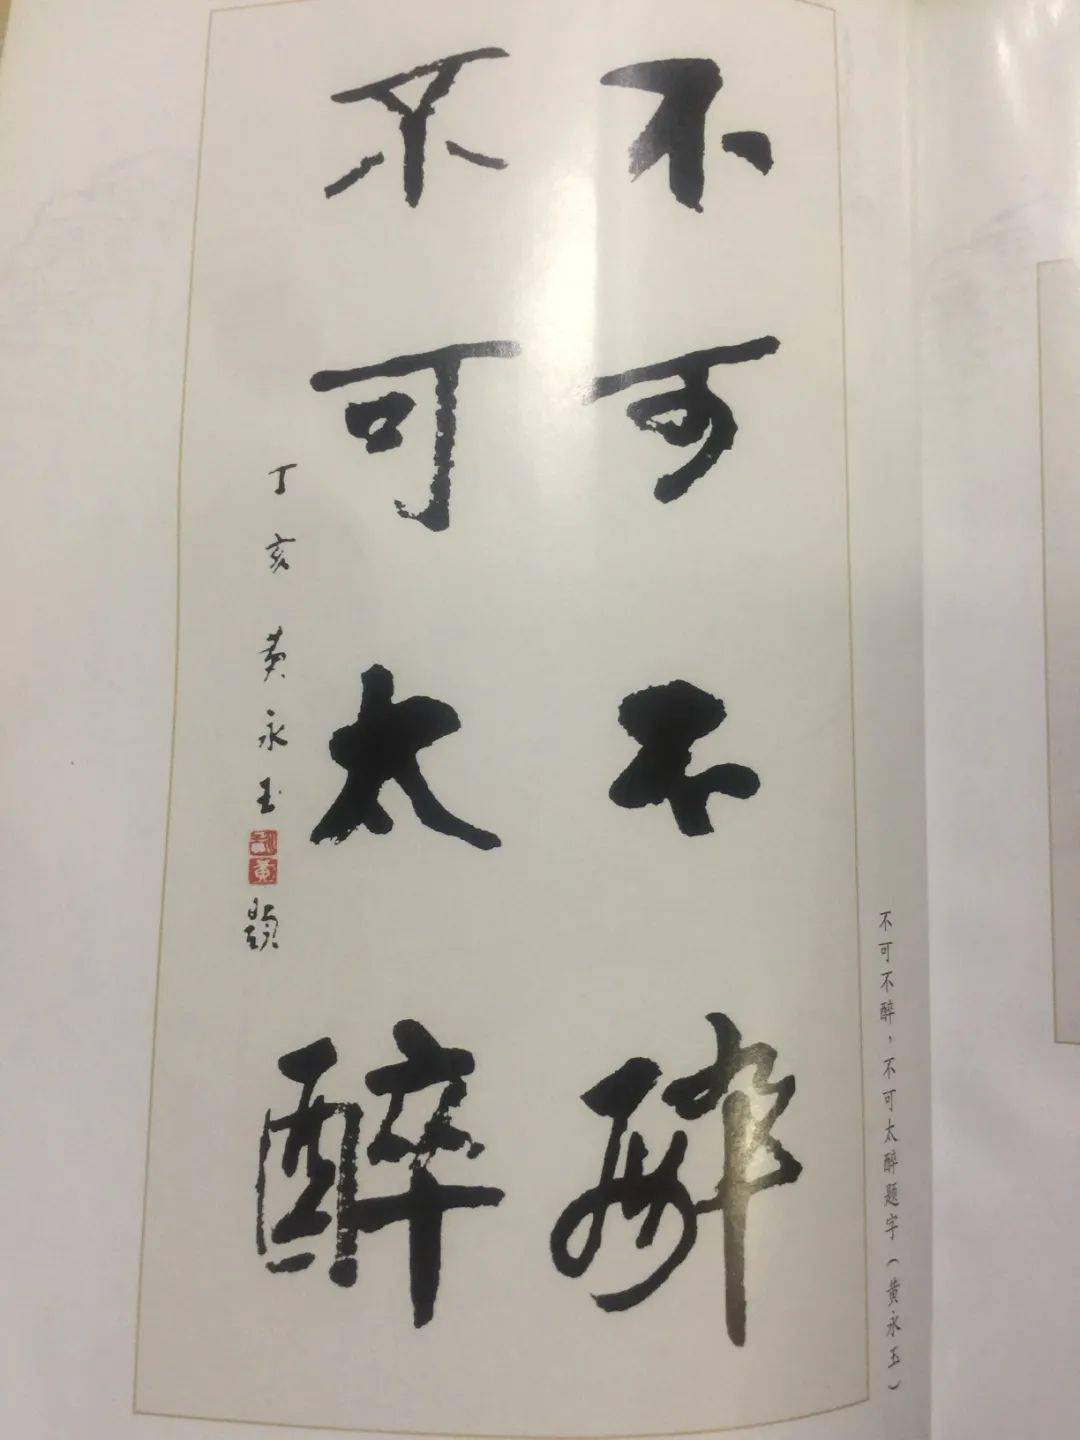 不可不醉
不可太醉
丁亥 黄永玉
黄
题
不可不醉，不可太醉题字（黄永玉）